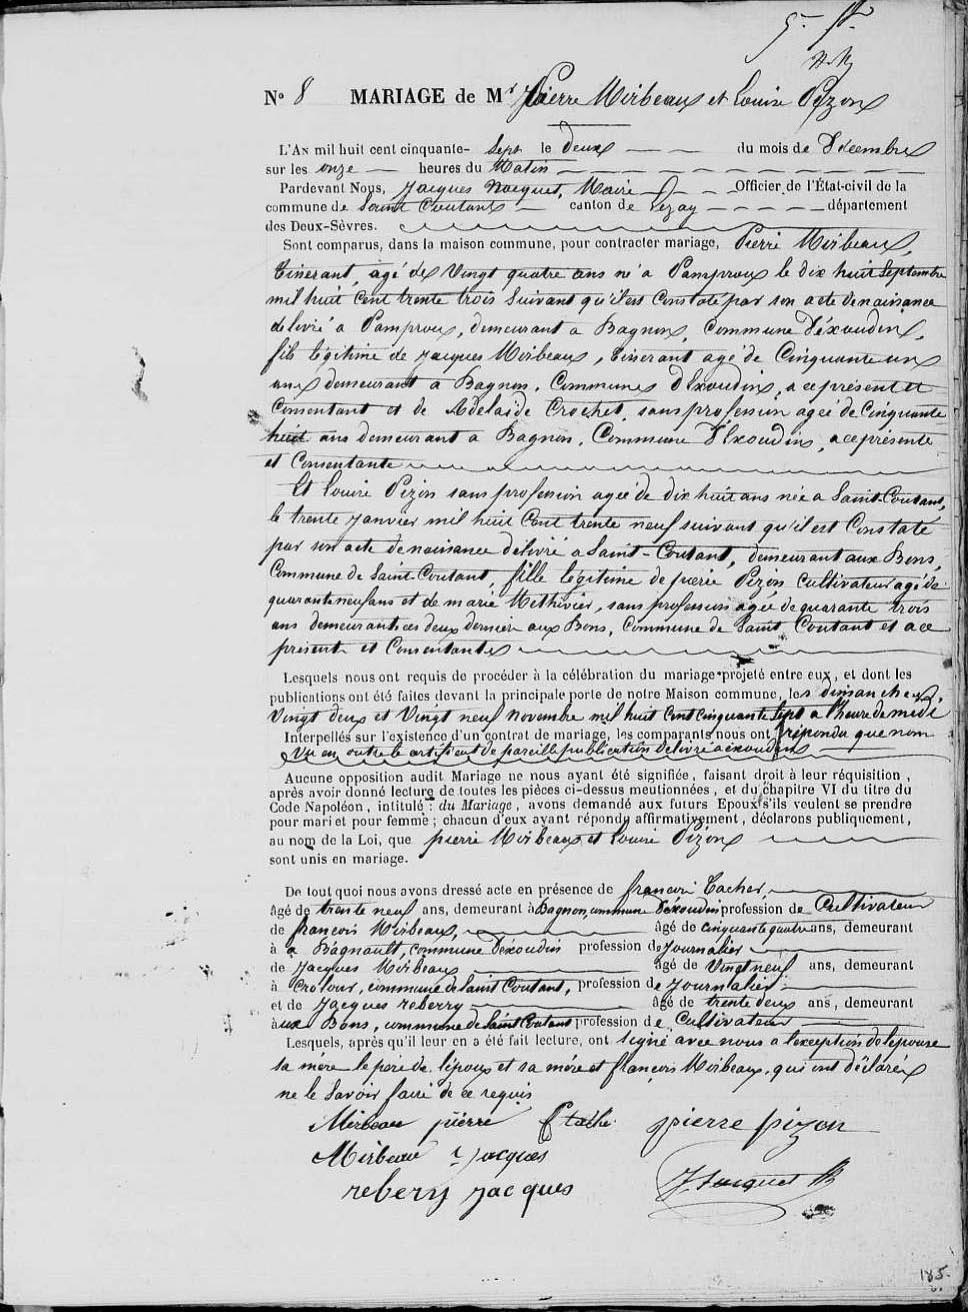 No 8 MARIAGE de Mr Pierre Mirbeaux et Louise Pizon
L'An mil huit cent cinquante- Sept le deux du mois de Décembre
sur les onze heures du Matin
Pardevant Nous, Jacques Nocquet, Maire Officier de l'État-civil de la
commune de Saint Coutant canton de Lezay département
des Deux-Sèvres.
Sont comparus, dans la maison commune, pour contracter mariage, Pierre Mirbeaux,
agé de Vingt quatre ans né a Pamproux le dix huit Septembre
mil huit Cent trente trois Suivant qu'il est Constaté par son acte de naissance
délivré a Pamproux, demeurant a Bagnon, Commune d'éxoudun,
fils légitime de Jacques Mirbeaux, agé de Cinquante un
ans demeurant a Bagnon, Commune d'Exoudun, a ce présent et
Consentant et de Adelaide Crochet, sans profession agée de Cinquante
huit ans demeurant a Bagnon, Commune d'Exoudun, a ce présente
et Consentante
Et Louise Pizon sans profession agée de dix huit ans née a Saint-Coutant,
le trente Janvier mil huit Cent trente neuf suivant qu'il est Constaté
par son acte de naissance délivré a Saint-Coutant, demeurant aux Bons,
Commune de Saint-Coutant, fille légitime de pierre Pizon Cultivateur agé de
quarante neuf ans et de marie Methivier, sans profession agée de quarante trois
ans demeurant ces deux dernier aux Bons, Commune de Saint Coutant et a ce
présent et Consentantes
Lesquels nous ont requis de procéder à la célébration du mariage projeté entre eux, et dont les
publications ont été faites devant la principale porte de notre Maison commune, les dimanches
Vingt deux et Vingt neuf Novembre mil huit Cent Cinquante Sept a l'heure de midi
Interpellés sur l'existence d'un contrat de mariage, les comparants nous ont répondu que non
Vu en outre le certificat de pareille publication délivré a éxoudun
Aucune opposition audit Mariage ne nous ayant été signifiée, faisant droit à leur réquisition,
après avoir donné lecture de toutes les pièces ci-dessus meutionnées, et du chapitre VI du titre du
Code Napoléon, intitulé : du Mariage, avons demandé aux futurs Epoux s'ils veulent se prendre
pour mari et pour femme ; chacun d'eux ayant répondu affirmativement, déclarons publiquement,
au nom de la Loi, que pierre Mirbeaux et Louise Pizon
sont unis en mariage.
De tout quoi nous avons dressé acte en présence de françois Tacher
âgé de trente neuf ans, demeurant à Bagnon, commune d'éxoudun profession de Cultivateur
de françois Mirbeaux, âgé de cinquante quatre ans, demeurant
à a Bagnault, commune d'éxoudun profession de Journalier
de Jacques Mirbeaux âgé de Vingt neuf ans, demeurant
à commune de Saint Coutant, profession de Journalier
et de Jacques reberry âgé de trente deux ans, demeurant
à aux Bons, commune de Saint Coutant profession de Cultivateur
Lesquels, après qu'il leur en a été fait lecture, ont Signé avec nous a l'exception de l'épouse
sa mère le père de l'époux et sa mère et françois Mirbeaux, qui ont déclarés
ne le Savoir faire de ce requis
Mirbeau pierre pierre pizon
Mirbeau Jacques
rebery Jacques
185